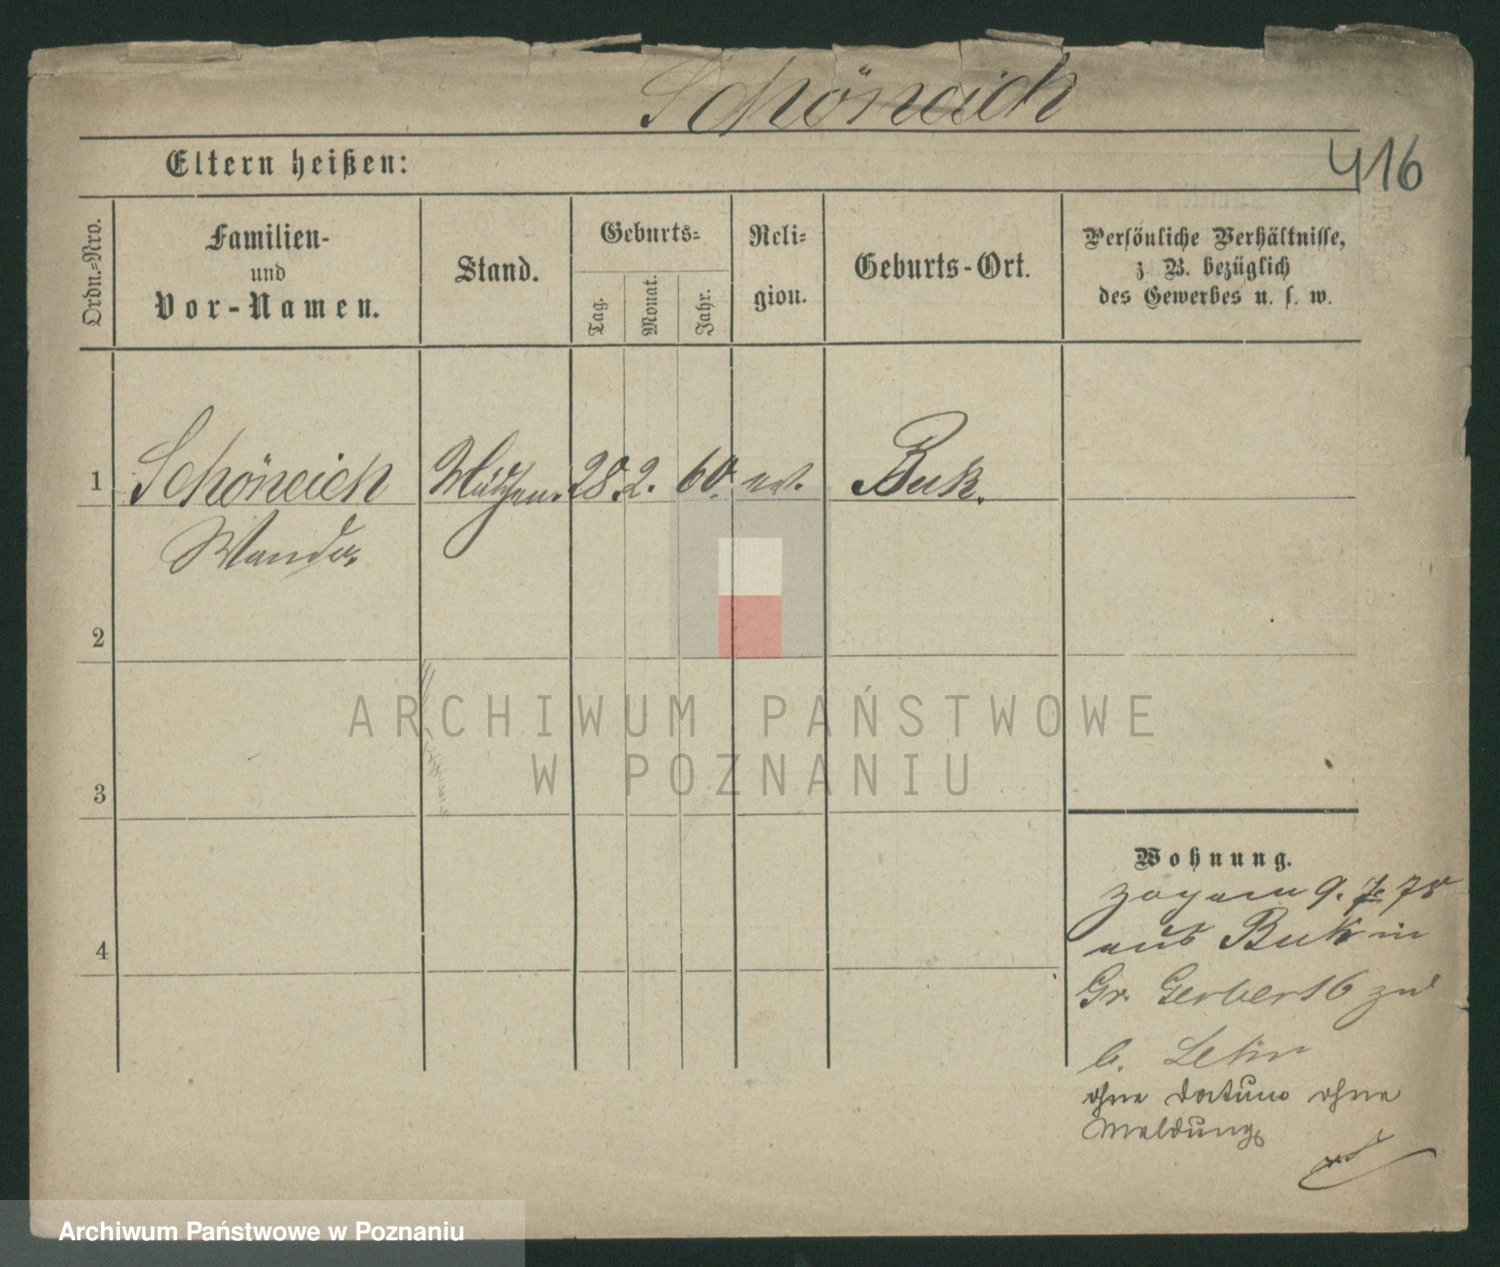 Schöneich
416
Eltern heißen:
Ordn.-Nro.
Familien-
und
Vor-Namen.
Stand.
Geburts-
Tag.
Monat.
Jahr.
Reli-
gion.
Geburts-Ort.
Persönliche Verhältnisse,
z. B. bezüglich
des Gewerbes u. s. w.
1 Schöneich Mädchen. 28. 2. 60. Buk.
Wanda.
2
3
4
Wohnung.
9. 7. 78
aus Buk in
Gr. Gerber 16 zu
b.
ohne Datum ohne
Meldung
ARCHIWUM PAŃSTWOWE
W POZNANIU
Archiwum Państwowe w Poznaniu